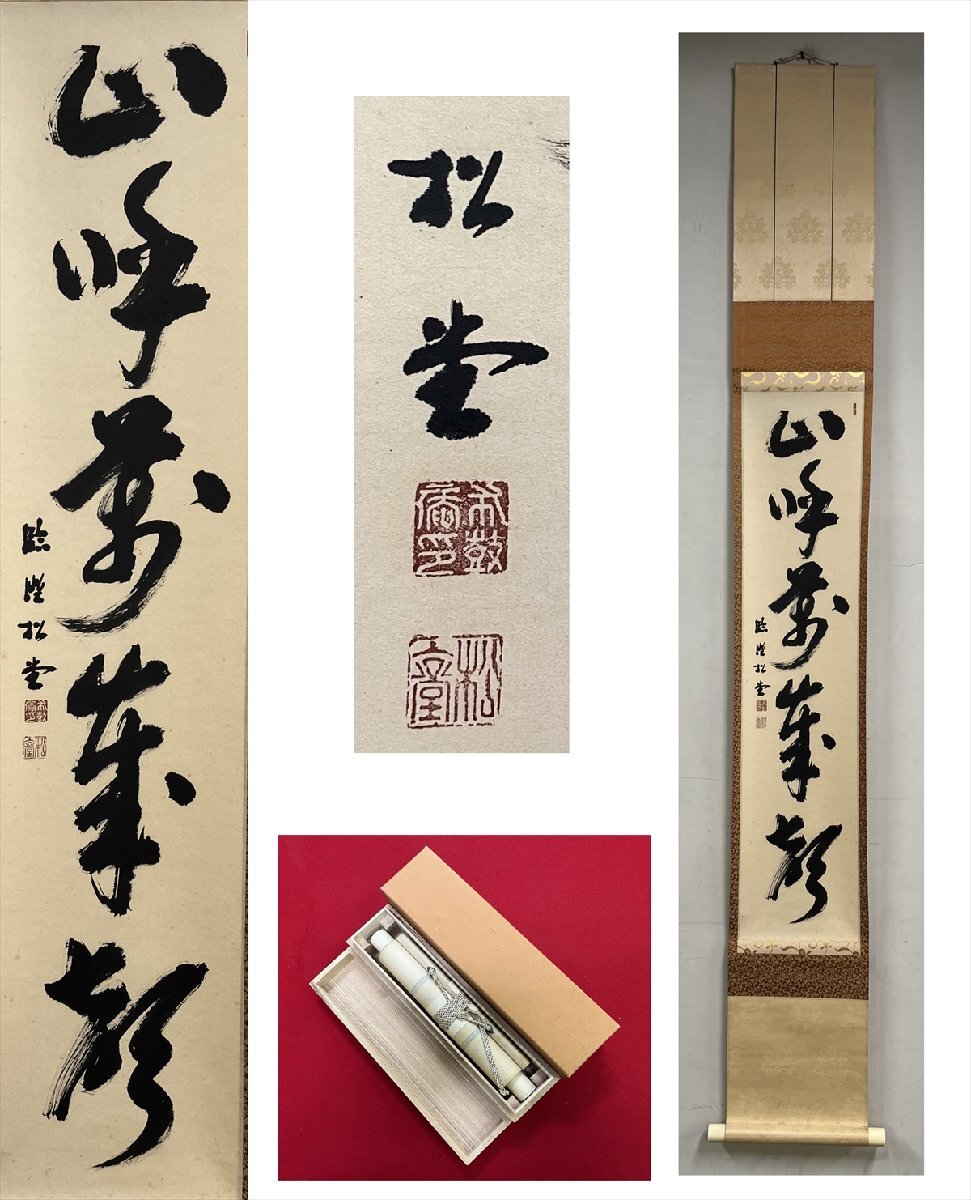 山呼萬歳聲
臨濟松堂
松堂
山呼萬歳聲
臨濟松堂